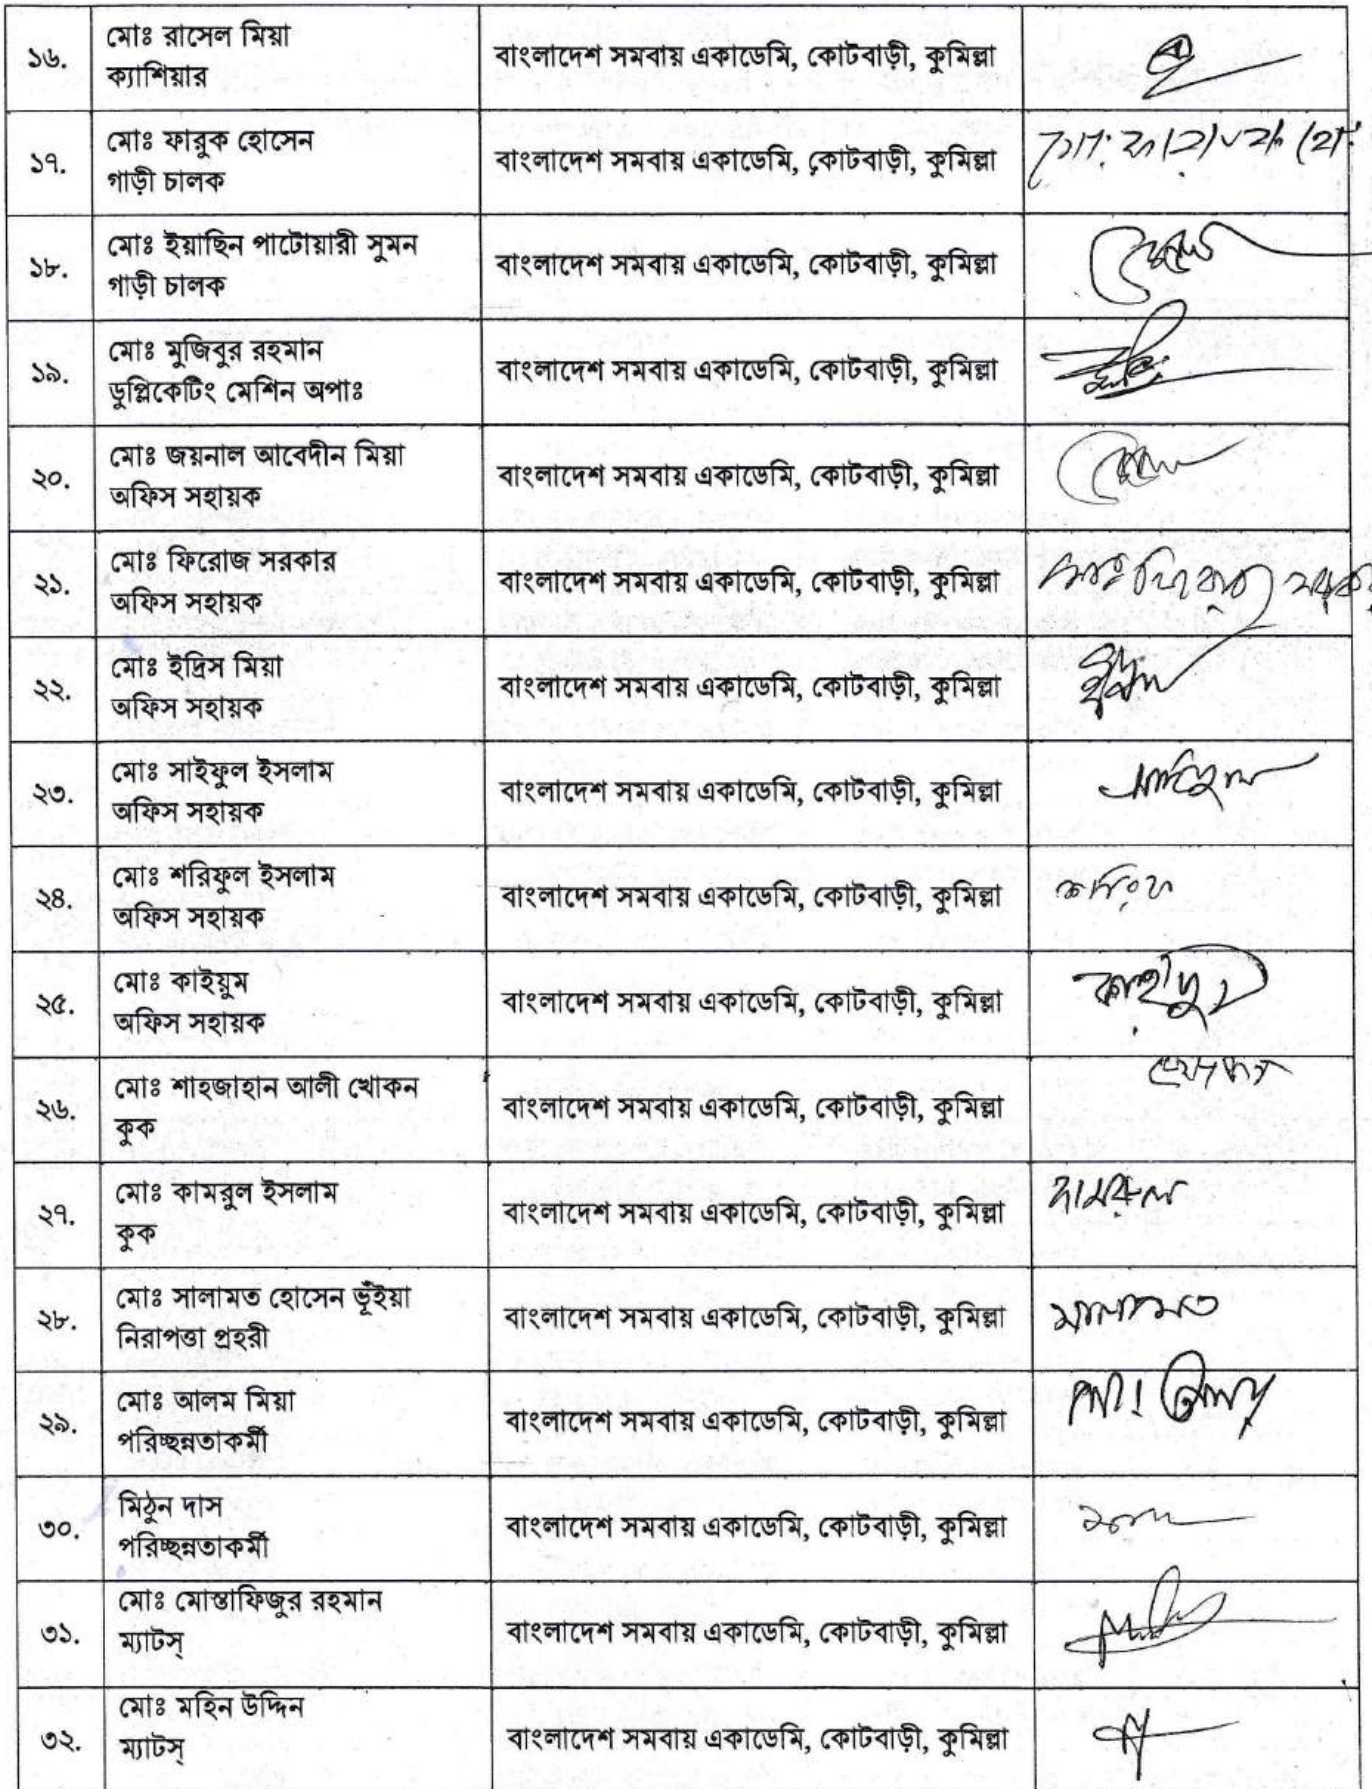 ১৬.
মোঃ রাসেল মিয়া
ক্যাশিয়ার
বাংলাদেশ সমবায় একাডেমি, কোটবাড়ী, কুমিল্লা
১৭.
মোঃ ফারুক হোসেন
গাড়ী চালক
বাংলাদেশ সমবায় একাডেমি, কোটবাড়ী, কুমিল্লা
১৮.
মোঃ ইয়াছিন পাটোয়ারী সুমন
গাড়ী চালক
বাংলাদেশ সমবায় একাডেমি, কোটবাড়ী, কুমিল্লা
১৯.
মোঃ মুজিবুর রহমান
ডুপ্লিকেটিং মেশিন অপাঃ
বাংলাদেশ সমবায় একাডেমি, কোটবাড়ী, কুমিল্লা
২০.
মোঃ জয়নাল আবেদীন মিয়া
অফিস সহায়ক
বাংলাদেশ সমবায় একাডেমি, কোটবাড়ী, কুমিল্লা
২১.
মোঃ ফিরোজ সরকার
অফিস সহায়ক
বাংলাদেশ সমবায় একাডেমি, কোটবাড়ী, কুমিল্লা
২২.
মোঃ ইদ্রিস মিয়া
অফিস সহায়ক
বাংলাদেশ সমবায় একাডেমি, কোটবাড়ী, কুমিল্লা
২৩.
মোঃ সাইফুল ইসলাম
অফিস সহায়ক
বাংলাদেশ সমবায় একাডেমি, কোটবাড়ী, কুমিল্লা
২৪.
মোঃ শরিফুল ইসলাম
অফিস সহায়ক
বাংলাদেশ সমবায় একাডেমি, কোটবাড়ী, কুমিল্লা
২৫.
মোঃ কাইয়ুম
অফিস সহায়ক
বাংলাদেশ সমবায় একাডেমি, কোটবাড়ী, কুমিল্লা
২৬.
মোঃ শাহজাহান আলী খোকন
কুক
বাংলাদেশ সমবায় একাডেমি, কোটবাড়ী, কুমিল্লা
২৭.
মোঃ কামরুল ইসলাম
কুক
বাংলাদেশ সমবায় একাডেমি, কোটবাড়ী, কুমিল্লা
কামরুল
২৮.
মোঃ সালামত হোসেন ভূঁইয়া
নিরাপত্তা প্রহরী
বাংলাদেশ সমবায় একাডেমি, কোটবাড়ী, কুমিল্লা
সালামত
২৯.
মোঃ আলম মিয়া
পরিচ্ছন্নতাকর্মী
বাংলাদেশ সমবায় একাডেমি, কোটবাড়ী, কুমিল্লা
৩০.
মিঠুন দাস
পরিচ্ছন্নতাকর্মী
বাংলাদেশ সমবায় একাডেমি, কোটবাড়ী, কুমিল্লা
৩১.
মোঃ মোস্তাফিজুর রহমান
ম্যাটস্
বাংলাদেশ সমবায় একাডেমি, কোটবাড়ী, কুমিল্লা
৩২.
মোঃ মহিন উদ্দিন
ম্যাটস্
বাংলাদেশ সমবায় একাডেমি, কোটবাড়ী, কুমিল্লা